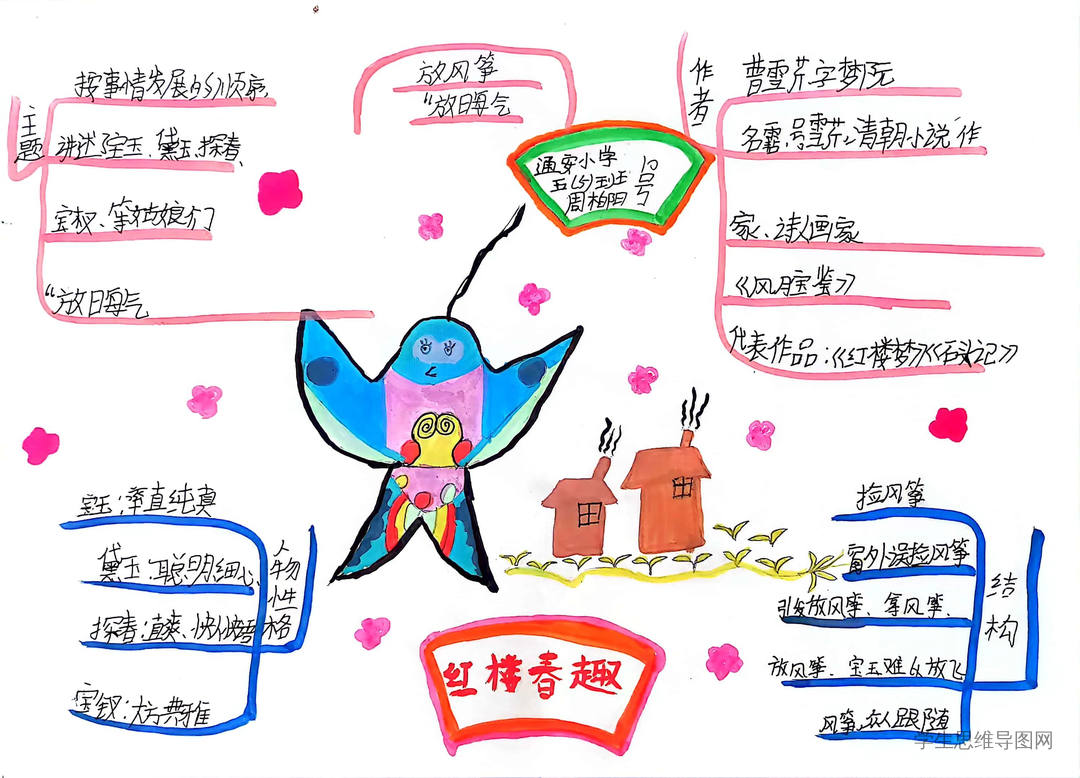 放风筝
"放日每气
作者
曹雪芹.字梦阮
名霑.号雪芹.清朝小说作
家、诗人画家
《风月宝鉴》
代表作品:《红楼梦》《石头记》
通安小学
五(5)班
周柏阳
号
主题
按事情发展的顺序,
讲述了宝玉、黛玉、探春、
宝钗、等姑娘们
"放日每气
人物性格
宝玉:率直纯真
黛玉:聪明细心、
探春:直爽、
宝钗:大方典雅
红楼春趣
结构
捡风筝
窗外误捡风筝
引发放风筝、拿风筝、
放风筝、宝玉难以放飞
风筝,众人跟随
学生思维导图网